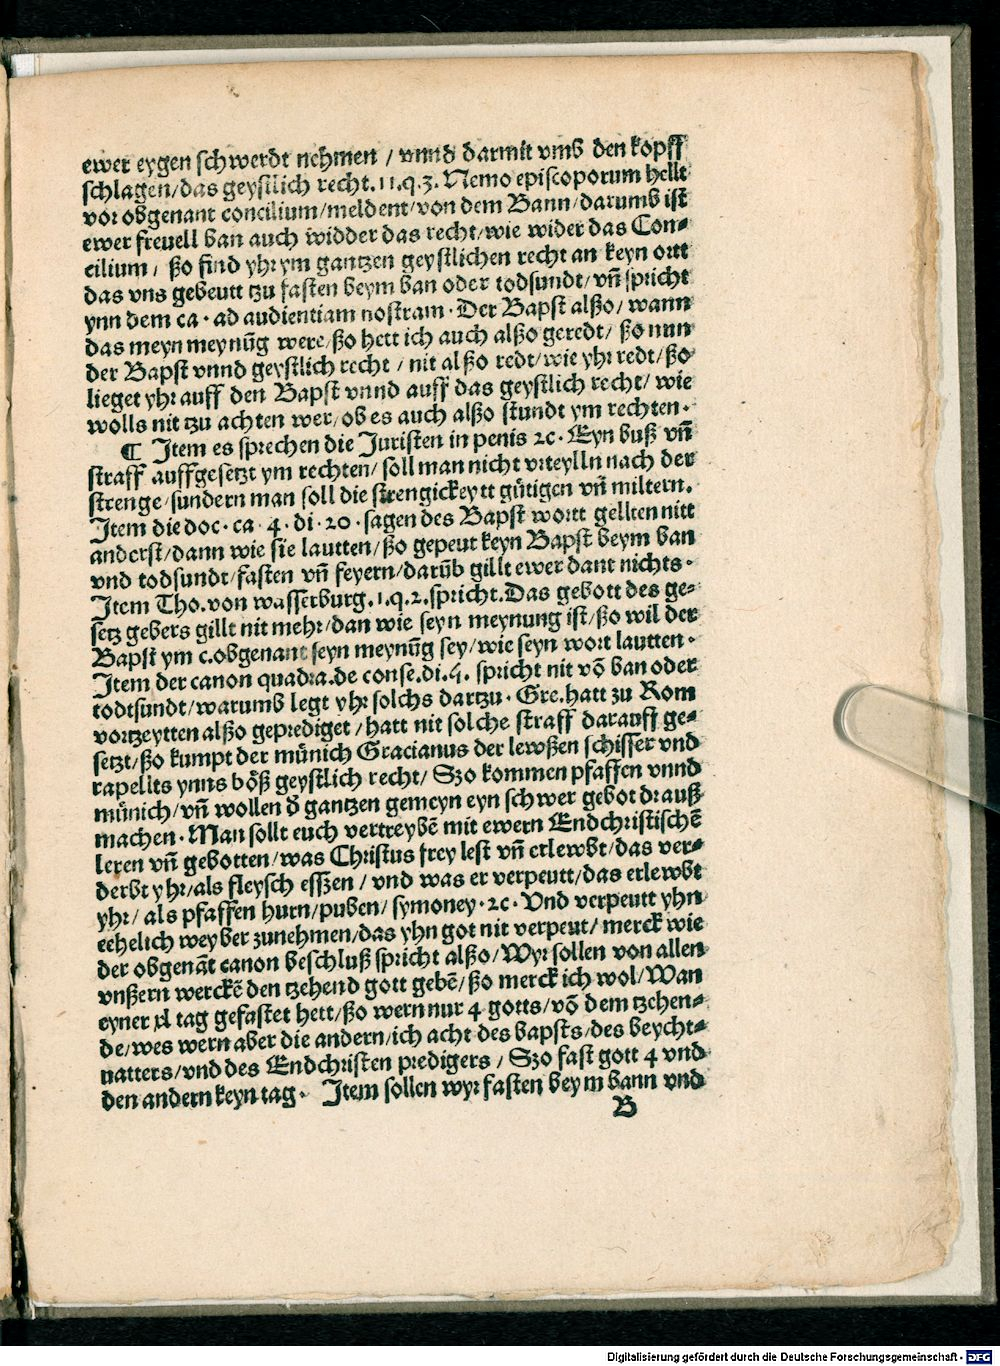 ewer eygen schwerdt nehmen / vnnd darmit vmb den kopff
schlagen/das geystlich recht.11.q.3. Nemo episcoporum hellt
vor obgenant concilium/meldent/von dem Bann/darumb ist
ewer freuell ban auch widder das recht/wie wider das Con⸗
cilium / ßo find yhr ym gantzen geystlichen recht an keyn ortt
das vns gebeutt tzu fasten beym ban oder todsundt/vñ spricht
ynn dem ca · ad audientiam nostram · Der Bapst alßo/ wann
das meyn meynũg were/ßo hett ich auch alßo geredt/ ßo nun
der Bapst vnnd geystlich recht / nit alßo redt/wie yhr redt/ßo
lieget yhr auff den Bapst vnnd auff das geystlich recht/ wie
wolls nit tzu achten wer/ob es auch alßo stundt ym rechten·
¶ Item es sprechen die Juristen in penis ꝛc · Eyn buß vñ
straff auffgesetzt ym rechten/ soll man nicht vrteylln nach der
strenge/sundern man soll die strengickeytt gütigen vñ miltern.
Item die doc · ca · 4 · di · 20 · sagen des Bapst wortt gellten nitt
anderst/dann wie sie lautten/ßo gepeut keyn Bapst beym ban
vnd todsundt/fasten vñ feyern/darũb gillt ewer dant nichts·
Item Tho.von wasserburg.1.q.2.spricht.Das gebott des ge⸗
setz gebers gillt nit mehr/dan wie seyn meynung ist/ßo wil der
Bapst ym c.obgenant seyn meynũg sey/wie seyn wort lautten·
Item der canon quadra.de conse.di.5. spricht nit võ ban oder
todtsundt/warumb legt yhr solchs dartzu · Gre.hatt zu Rom
vortzeytten alßo geprediget/hatt nit solche straff darauff ge⸗
setzt/ßo kumpt der münich Gracianus der lewßen schisser vnd
rapellts ynns bőß geystlich recht/ Szo kommen pfaffen vnnd
münich/vñ wollen d̕ gantzen gemeyn eyn schwer gebot drauß
machen · Man sollt euch vertreybẽ mit ewern Endchristischẽ
leren vñ gebotten/was Christus frey lest vñ erlewbt/das ver⸗
derbt yhr/als fleysch esszen / vnd was er verpeutt/das erlewbt
yhr/ als pfaffen hurn/puben/ symoney · ꝛc · Vnd verpeutt yhn
eehelich weyber zunehmen/das yhn got nit verpeut/ merck wie
der obgenãt canon beschluß spricht alßo/Wyr sollen von allen
vnßern werckẽ den tzehend gott gebẽ/ßo merck ich wol/Wan
eyner xl tag gefastet hett/ßo wern nur 4 gotts/võ dem tzehen⸗
de/wes wern aber die andern/ich acht des bapsts/des beycht⸗
vatters/vnd des Endchristen predigers / Szo fast gott 4 vnd
den andern keyn tag · Item sollen wyr fasten beym bann vnd
B
Digitalisierung gefördert durch die Deutsche Forschungsgemeinschaft - DFG